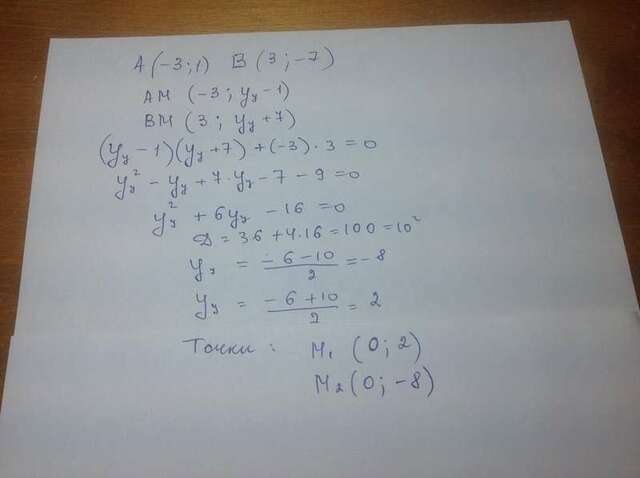 A (-3; 1) B (3; -7)
AM (-3; yy - 1)
BM (3; yy + 7)
(yy - 1)(yy + 7) + (-3) · 3 = 0
yy² - yy + 7·yy - 7 - 9 = 0
yy² + 6yy - 16 = 0
D = 36 + 4·16 = 100 = 10²
yy = (-6 - 10)/2 = -8
yy = (-6 + 10)/2 = 2
Точки: M₁ (0; 2)
M₂ (0; -8)